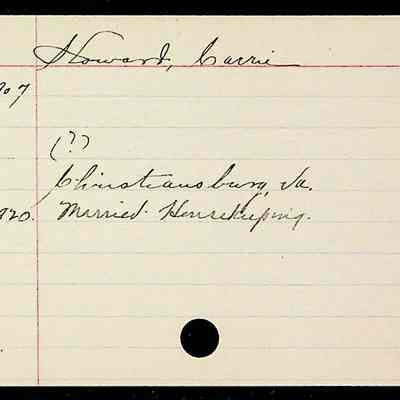 Howard, Carrie
907
(?)
Christiansburg, Va.
920. Married. Housekeeping.